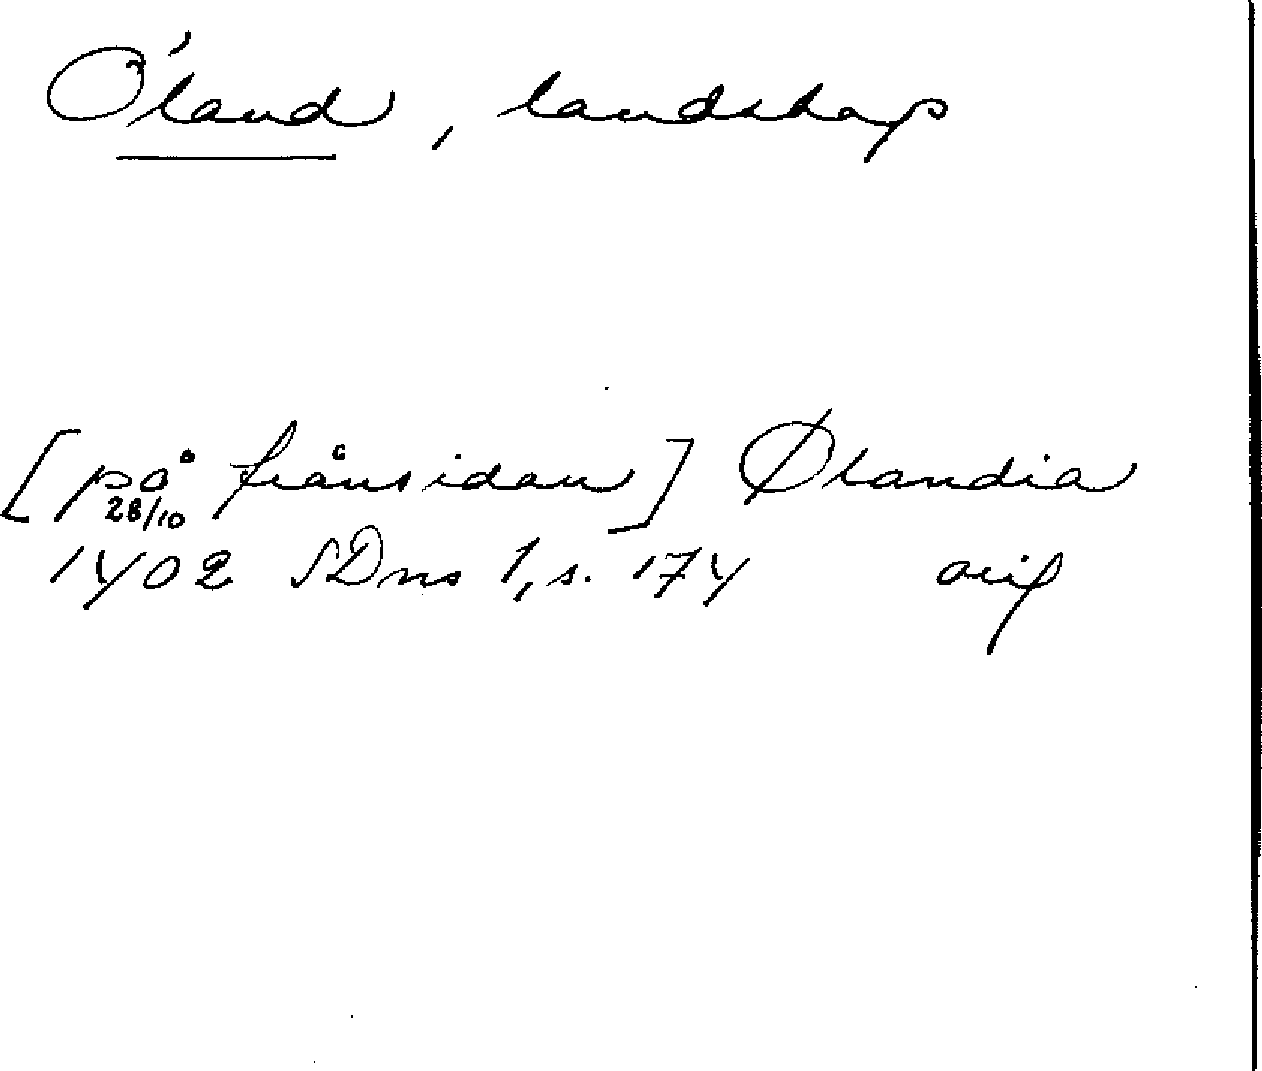 Öland, landskap
[på frånsidan] Ølandia
28/10
1402 SDns 1, s. 174 orig